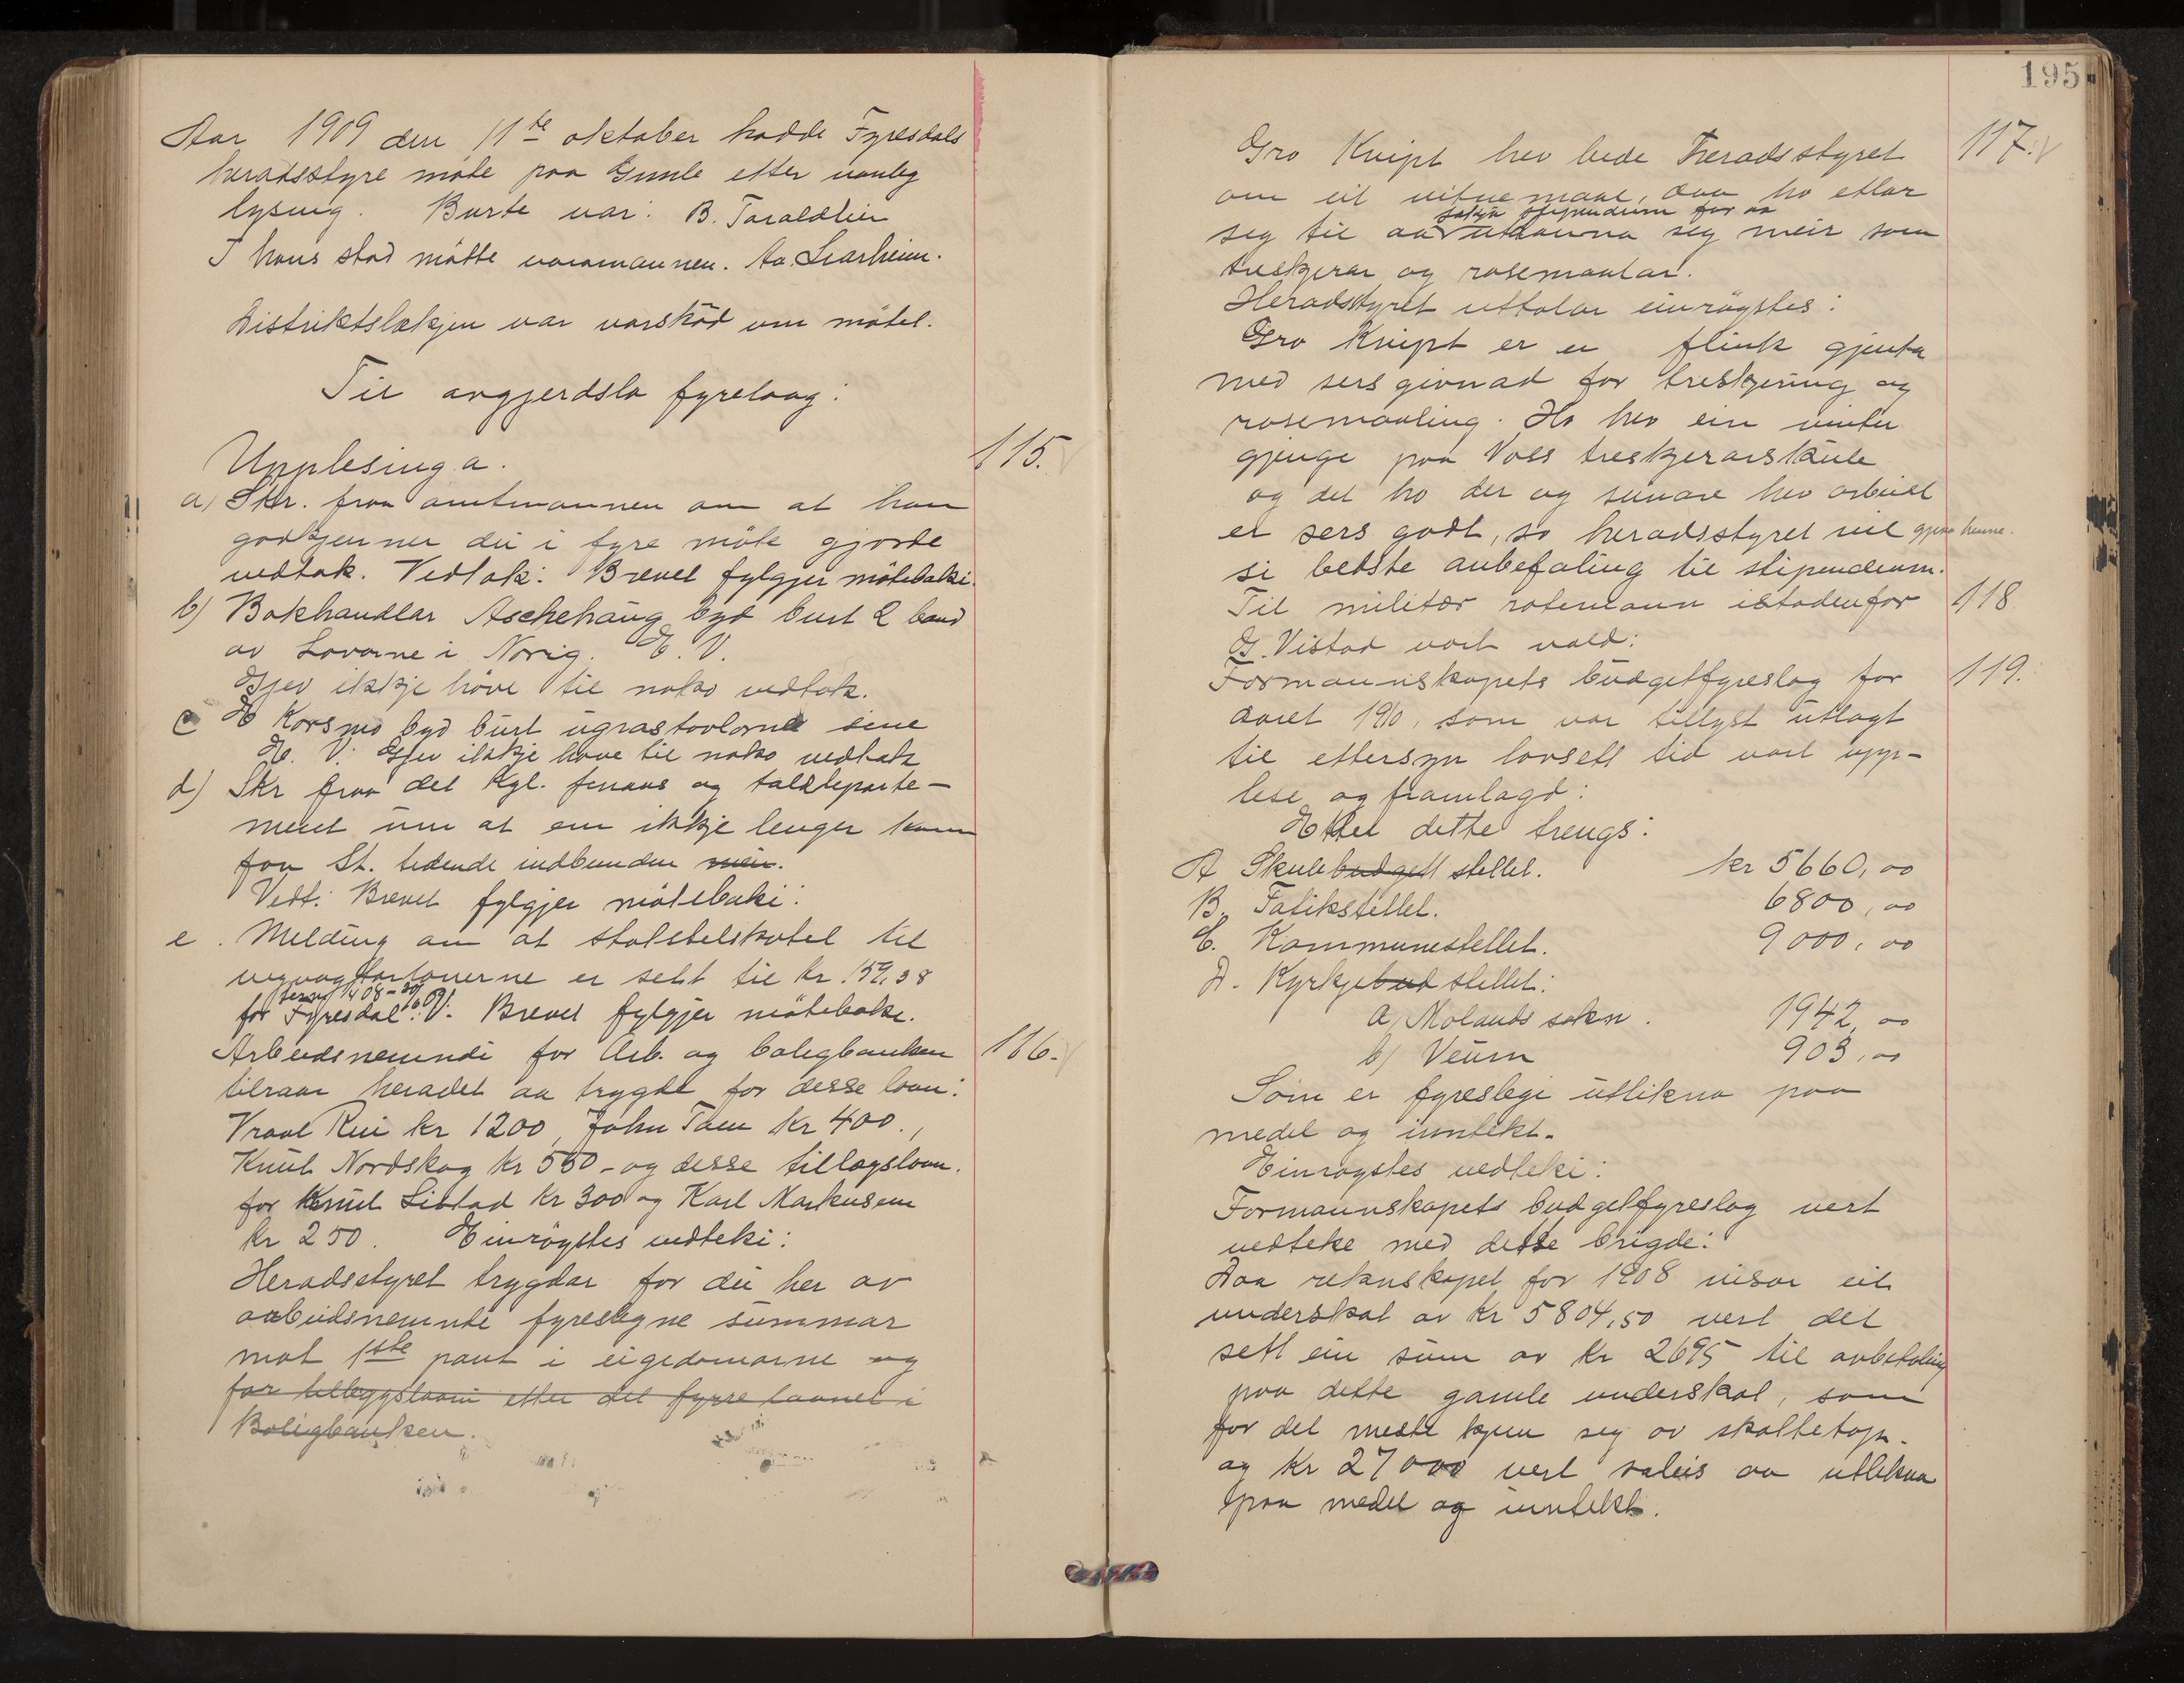 Aar 1909 den 11te oktober hadde Fyresdals
heradsstyre møte paa Gimle etter vanleg
lysing. Burte var: B. Taraldlien
I hans stad møtte varamannen. Aa. Liarheim.
Distriktslækjen var varskød um møtet.
Til avgjerdsla fyrelaag:
Upplesinga. 115.
a) Skr. fraa amtmannen om at han
godkjenner dei i fyre møte gjorde
vedtak. Vedtak: Brevet fylgjer møteboki.
b) Bokhandlar Aschehaug byd burt 2 band
av Lovarne i Norig. E. V.
Gjev ikkje høve til noko vedtak.
c E Korsmo byd burt ugrastavlorne sine
E. V. Gjev ikkje høve til noko vedtak
d) Skr fraa det Kgl. finans og tolldeparte-
ment um at em ikkje lenger kann
faa St. tidende indbunden mein.
Vedt: Brevet fylgjer møteboki:
e. Melding om at statstelskotet til
er sett til kr. 159,38
for Fyresdal. V. Brevet fylgjer møteboki.
Arbeidsnemndi for Arb. og boligbanken 116.
tilraar heradet aa trygde for desse laan:
Vraal Rui kr 1200, John Tam kr 400.,
Knut Nordskog kr 550 - og desse tillagslaan.
for Knut Listad kr 300 og Karl Markusen
kr 250. Einrøystes vedteki:
Heradsstyret trygdar for dei her av
arbeidsnemndi fyreslegne summar
mot 1ste pant i eigedomarne og
for tilleggslaani etter det fyrre laanet i
Boligbanken.
195
Gro Kvipt hev bede Heradsstyret 117.
om eit vitnemaal, daa ho etlar
søkja stipendium for aa
seg til aa utdanna seg meir som
treskjerar og rosemaalar.
Heradsstyret uttalar einrøystes:
Gro Kvipt er ei flink gjenta
med sers givnad for treskjering og
rosemaaling. Ho hev ein vinter
gjenge paa Voss treskjerarskule
og det ho der og seinare hev arbeidt
er sers godt, so heradsstyret vil gjeva henne.
si bedste anbefaling til stipendium.
Til militær rotemann istadenfor 118.
G. Vistad vart vald:
Formannskapets budgetfyreslag for 119.
aaret 1910, som var tillyst utlagt
til ettersyn lovsett tid vart upp-
lese og framlagd:
Etter dette trengs:
A Skulebudgett stellet. kr 5660,00
B. Fatikstellet. 6800,00
C. Kommunestellet. 9000,00
D. Kyrkjebud stellet:
a) Molands sokn. 1942,00
b) Veum 903,00
Som er fyreslege utlikna paa
medel og inntekt.
Einrøystes vedteki:
Formannskapets budgetfyreslag vert
vedteke med dette brigde:
Daa rekneskapet for 1908 visar eit
underskot av kr 5804,50 vert det
sett ein sum av kr 2695 til avbetaling
paa dette gamle underskot, som
for det meste kjem seg av skattetap.
og kr 27000 vert soleis aa utlikna
paa medel og inntekt.